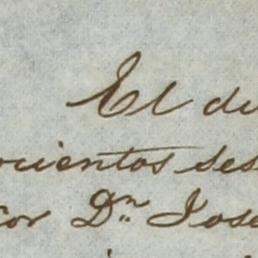 El du
ocientos ses
or Dn Jose